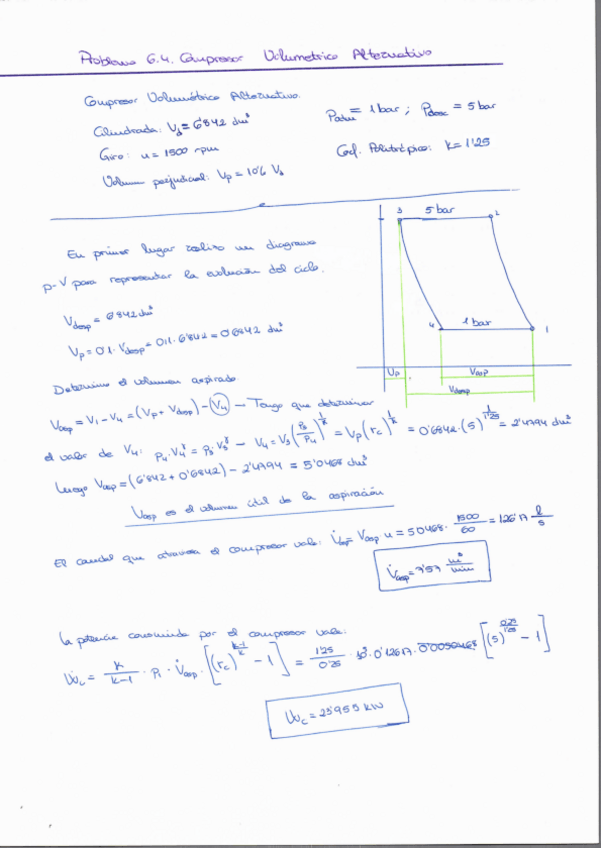 Problema 6.4. Compresor Volumetrico Alternativo
Compresor Volumétrico Alternativo.
Cilindrada: Vd = 6'842 dm³
Giro: n = 1500 rpm
Volumen perjudicial: Vp = 10% Vd
Padm = 1 bar ; Pdesc = 5 bar
Coef. Politrópico: k = 1'25
En primer lugar realizo un diagrama
p-V para representar la evolución del ciclo.
3 5 bar 2
4 1 bar 1
Vp Vasp
Vdesp
Vdesp = 6'842 dm³
Vp = 0'1 · Vdesp = 0'1 · 6'842 = 0'6842 dm³
Determino el volumen aspirado
Vasp = V1 - V4 = (Vp + Vdesp) - V4 — Tengo que determinar
el valor de V4: P4 · V4^γ = P3 · V3^γ — V4 = V3 (P3/P4)^(1/k) = Vp (rc)^(1/k) = 0'6842 · (5)^(1/1'25) = 2'4794 dm³
Luego Vasp = (6'842 + 0'6842) - 2'4794 = 5'0468 dm³
Vasp es el volumen útil de la aspiración
El caudal que atraviesa el compresor vale: V̇asp = Vasp n = 5'0468 · 1500/60 = 126'17 l/s
V̇asp = 7'57 m³/min
La potencia consumida por el compresor vale:
Ẇc = k/(k-1) · P1 · V̇asp · [(rc)^((k-1)/k) - 1] = 1'25/0'25 · 10² · 0'12617 · 0'0050468 [(5)^(0'25/1'25) - 1]
Ẇc = 23'955 kW